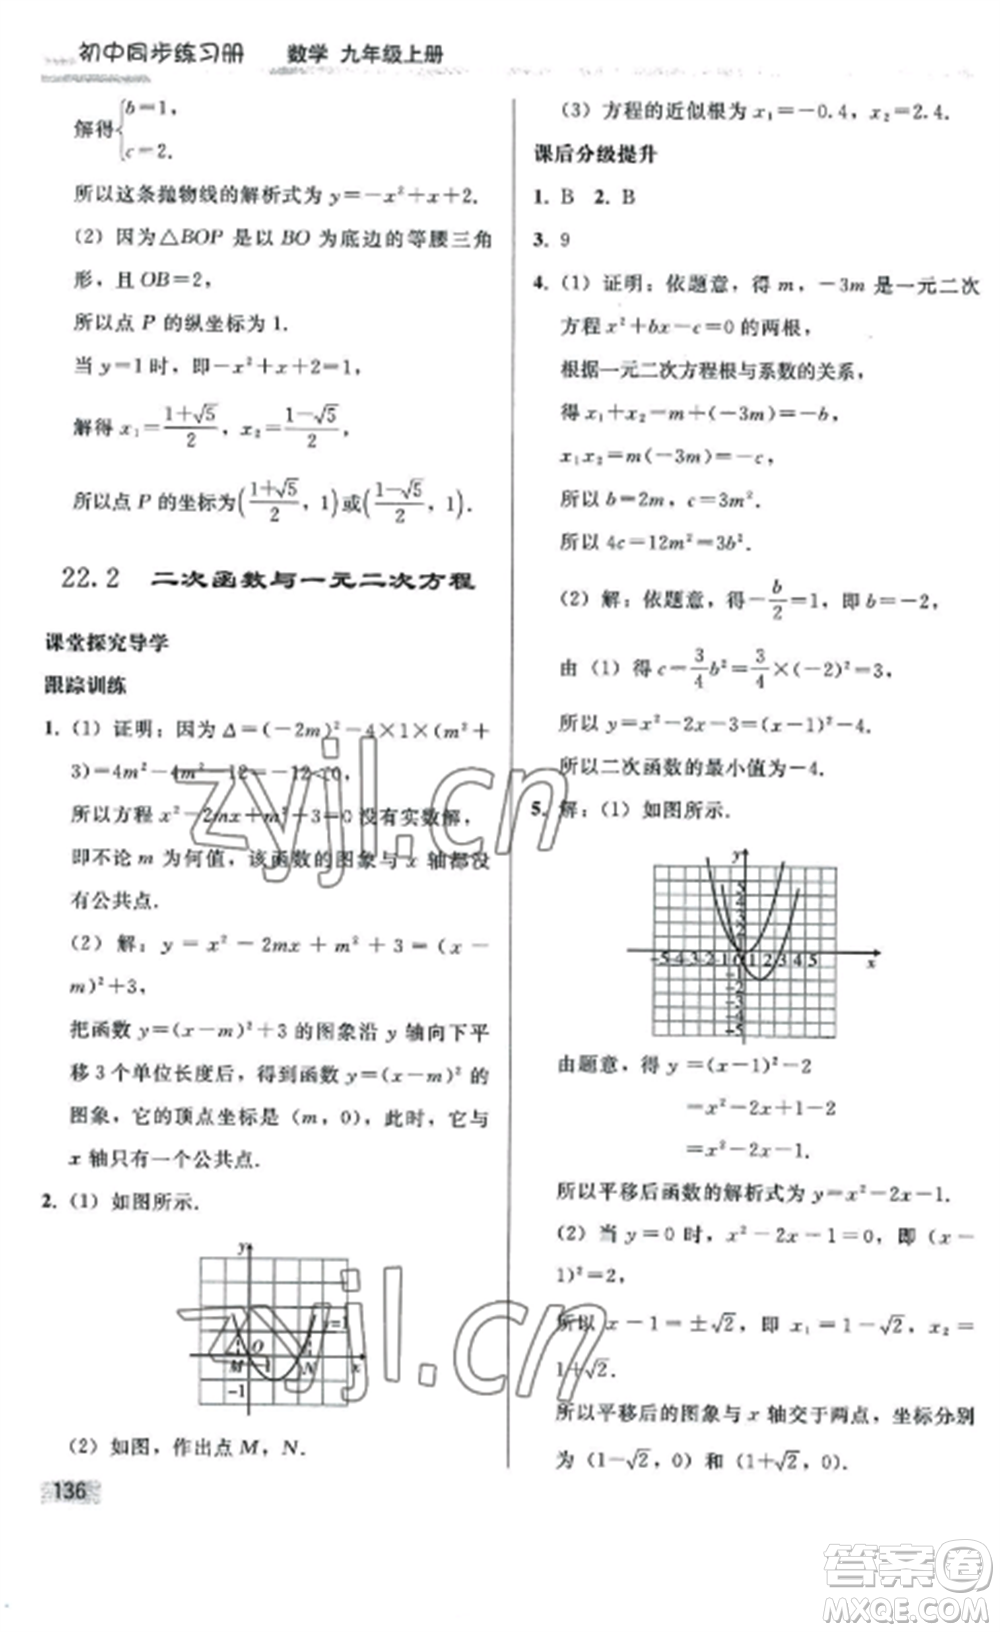 初中同步练习册 数学 九年级上册
解得{b=1,
c=2.
所以这条抛物线的解析式为 y=-x²+x+2.
(2) 因为△BOP 是以 BO 为底边的等腰三角
形，且 OB=2，
所以点 P 的纵坐标为 1.
当 y=1 时，即-x²+x+2=1.
解得 x₁=(1+√5)/2，x₂=(1-√5)/2，
所以点 P 的坐标为((1+√5)/2，1)或((1-√5)/2，1).
22.2 二次函数与一元二次方程
课堂探究导学
跟踪训练
1. (1) 证明：因为 Δ=(-2m)²-4×1×(m²+
3)=4m²-4m²-12=-12<0，
所以方程 x²-2mx+m²+3=0 没有实数解，
即不论 m 为何值，该函数的图象与 x 轴都没
有公共点.
(2) 解：y=x²-2mx+m²+3=(x-
m)²+3，
把函数 y=(x-m)²+3 的图象沿 y 轴向下平
移 3 个单位长度后，得到函数 y=(x-m)² 的
图象，它的顶点坐标是 (m，0)，此时，它与
x 轴只有一个公共点.
2. (1) 如图所示.
y
y=1
O
M 1 N x
-1
(2) 如图，作出点 M，N.
136
(3) 方程的近似根为 x₁=-0.4，x₂=2.4.
课后分级提升
1. B 2. B
3. 9
4. (1) 证明：依题意，得 m，-3m 是一元二次
方程 x²+bx-c=0 的两根，
根据一元二次方程根与系数的关系，
得 x₁+x₂=m+(-3m)=-b，
x₁x₂=m(-3m)=-c，
所以 b=2m，c=3m².
所以 4c=12m²=3b².
(2) 解：依题意，得-b/2=1，即 b=-2，
由 (1) 得 c=3/4b²=3/4×(-2)²=3，
所以 y=x²-2x-3=(x-1)²-4.
所以二次函数的最小值为-4.
5. 解：(1) 如图所示.
y
5
4
3
2
1
-5-4-3-2-1 O 1 2 3 4 5 x
-1
-2
-3
-4
-5
由题意，得 y=(x-1)²-2
=x²-2x+1-2
=x²-2x-1.
所以平移后函数的解析式为 y=x²-2x-1.
(2) 当 y=0 时，x²-2x-1=0，即 (x-
1)²=2，
所以 x-1=±√2，即 x₁=1-√2，x₂=
1+√2.
所以平移后的图象与 x 轴交于两点，坐标分别
为 (1-√2，0) 和 (1+√2，0).
zyjl.cn
zyjl.cn
答案圈
MXQE.COM